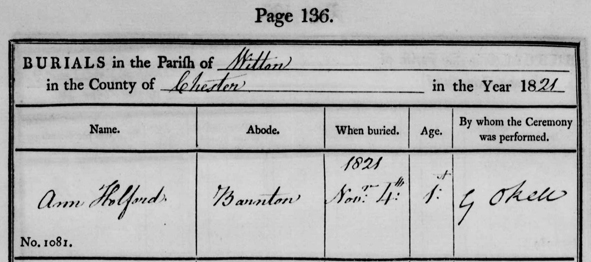 Page 136.
BURIALS in the Parish of Witton
in the County of Chester in the Year 1821
Name. Abode. When buried. Age. By whom the Ceremony was performed.
1821
Ann Holford Barnton Novr. 4th 1st G Okell
No. 1081.